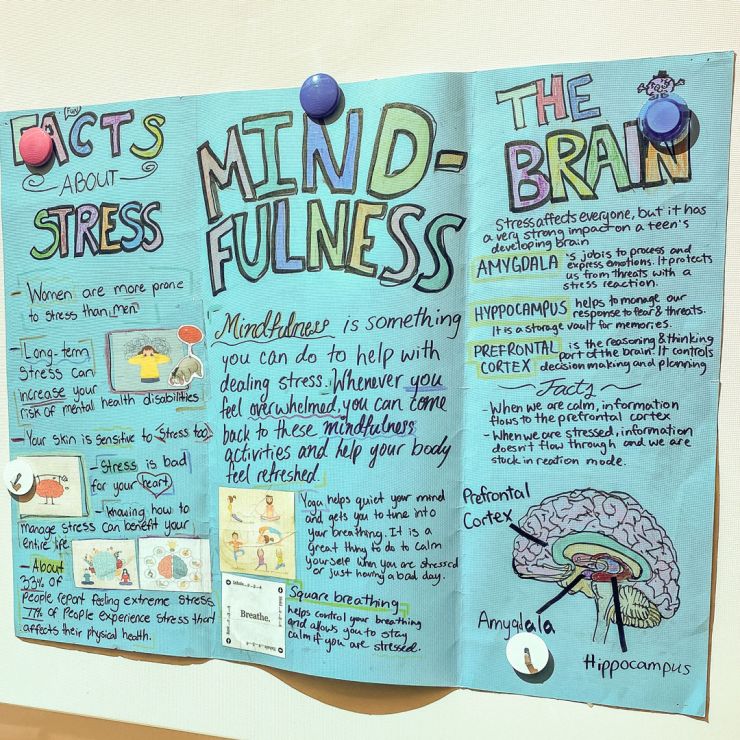 FUN
FACTS
ABOUT
STRESS
- Women are more prone
to stress than men.
- Long-term
stress can
increase your
risk of mental health disabilities
- Your skin is sensitive to stress too
- Stress is bad
for your heart
- Knowing how to
manage stress can benefit your
entire life.
- About
33% of
people report feeling extreme stress
77% of people experience stress that
affects their physical health.
MIND-
FULNESS
Mindfulness is something
you can do to help with
dealing stress. Whenever you
feel overwhelmed, you can come
back to these mindfulness
activities and help your body
feel refreshed.
Yoga helps quiet your mind
and gets you to tune into
your breathing. It is a
great thing to do to calm
yourself when you are stressed
or just having a bad day.
Breathe.
Square breathing
helps control your breathing
and allows you to stay
calm if you are stressed.
THE
BRAIN
Stress affects everyone, but it has
a very strong impact on a teen's
developing brain
AMYGDALA's job is to process and
express emotions. It protects
us from threats with a
stress reaction.
HYPPOCAMPUS helps to manage our
response to fear & threats.
It is a storage vault for memories.
PREFRONTAL is the reasoning & thinking
CORTEX part of the brain. It controls
decision making and planning
Facts
- When we are calm, information
flows to the prefrontal cortex
- When we are stressed, information
doesn't flow through and we are
stuck in reation mode.
Prefrontal
Cortex
Amygdala
Hippocampus